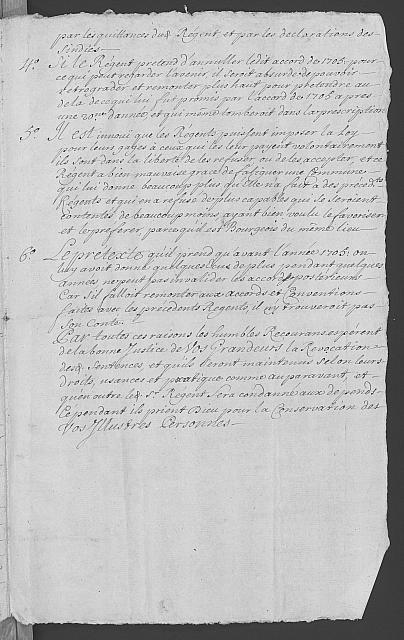 par les quittances dud Regent et par les declarations des
Sindics
4.° Si le Regent pretend d'annuller ledit accord de 1705. pour
ce qui peut regarder l'avenir, il seroit absurde de pouvoir
retrograder et remonter plus haut pour pretendre au
dela de ce qui lui fut promis par l'accord de 1705 apres
une d'année, et qui meme tomberoit dans la prescription
5.° Il est inoui que les Regents puissent imposer la Loy
pour leurs gages a ceux qui les leur payent volontairement
ils sont dans la liberté de les refuser ou de les accepter, et ce
Regent a bien mauvaise grace de fatiguer une Commune
qui lui donne beaucoup plus qu'Elle n'a fait a des preced.ts
Regents et qui en a refusé de plus capables qui se seroient
contentés de beaucoup moins, ayant bien voulu le favoriser
et le preferer parce qu'il est Bourgeois du même lieu
6.° Le pretexte qu'il prend qu'avant l'année 1705. on
luy avoit donné quelque de plus pendant quelques
années ne peut pas invalider les accords posterieurs
Car s'il falloit remonter aux accords et Conventions
faites avec les precedents Regents, il n'y trouveroit pas
Son Conte.
Par toutes ces raisons les humbles Recourans esperent
de la bonne Justice de Vos Grandeurs la Revocation
des Sentences et qu'ils seront maintenus selon leurs
droits, usances et pratique comme auparavant, et
qu'en outre led. S.r Regent sera condanné aux depends
Cependant ils prient Dieu pour la Conservation des
Vos Illustres Personnes